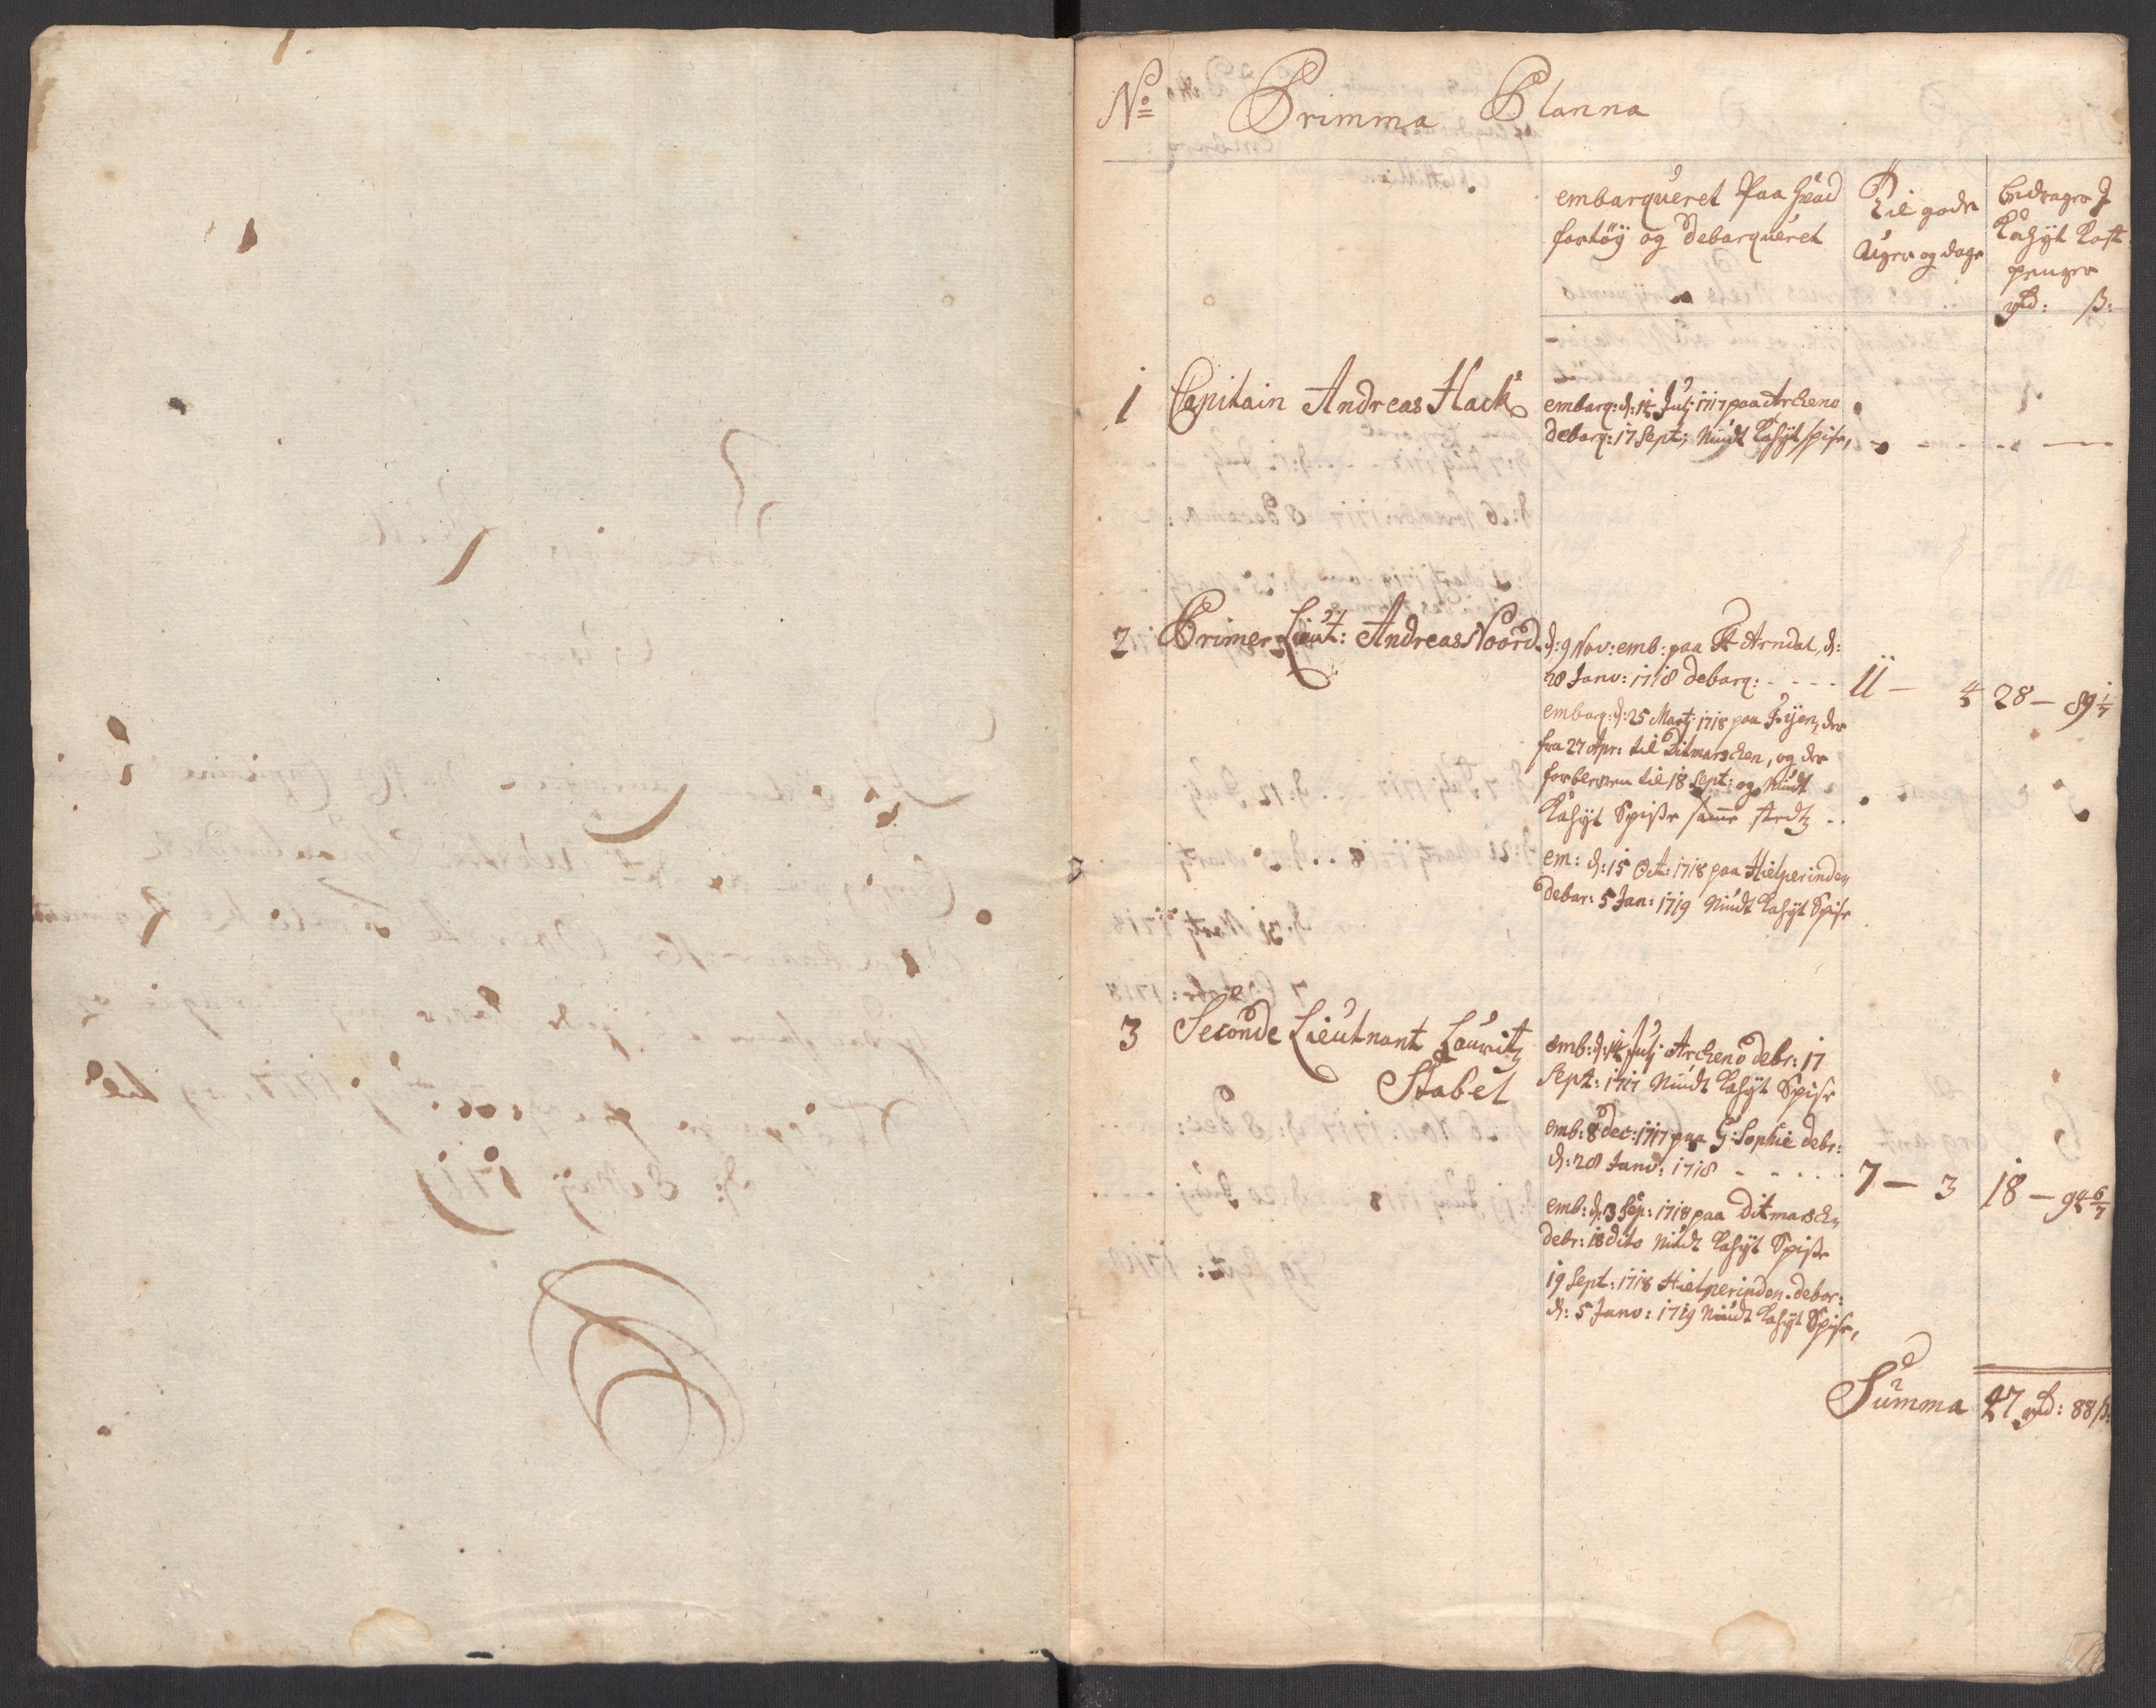 No Primma Planna
embarqueret paa hvad
fartöÿ og debarqueret
Til gode
Uger og dage
bedrager J
Kahÿt Kost
penger
rd: ß:
1 Capitain Andreas Hack
embarq: d: 14 Julj 1717 paa Archeno
debarq: 17 Sept: Nüdt Kahÿt spise,
2 Primer Lieut: Andreas Noord.
d: 9 Nov: emb: paa Arndal, d:
28 Janv: 1718 debarq: - - - - 11 - 4 28 - 89 1/7
embarq: d: 25 Martj 1718 paa Fyen, der
fra 27 Apr: til Ditmarschen, og der
forbleven til 18 Sept: og Nüdt
Kahÿt Spisse samme stedtz - -
em: d: 15 Oct: 1718 paa Hielperinden
debar: 5 Jan: 1719 Nüdt Kahÿt Spise
3 Seconde Lieutnant Lauritz
Stabel
emb: d: 14 Julj Archeno debr: 17
Sept: 1717 Nüdt Kahÿt Spise
emb: 8 dec: 1717 paa G: Sophie debr:
d: 28 Janv: 1718 - - - - - 7 - 3 18 - 94 6/7
emb: d: 13 Sep: 1718 paa Ditmarsch,
debr: 18 dito Nüdt Kahÿt Spisse
19 Sept: 1718 Hielperinden. debar:
d: 5 Janv: 1719 Nüdt Kahÿt Spise,
Summa 47 rd: 88 ß: